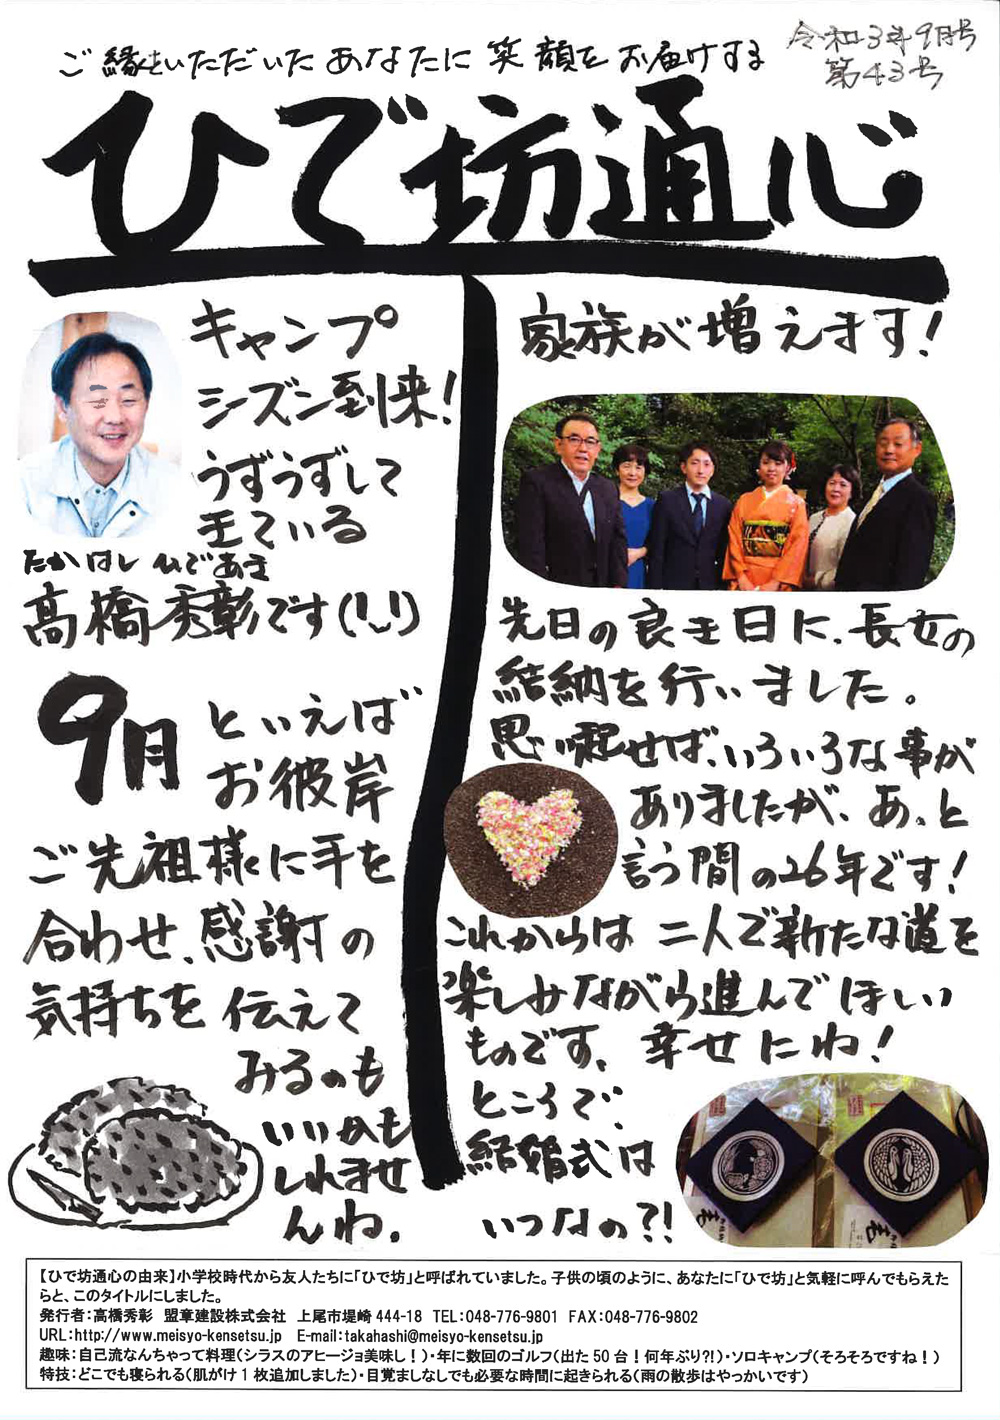 ご縁をいただいたあなたに笑顔をお届けする
令和3年9月号
第43号
ひで坊通心
キャンプ
シーズン到来!
うずうずして
きている
たかはし ひであき
髙橋秀彰です(!_!)
9月
といえば
お彼岸
ご先祖様に手を
合わせ、感謝の
気持ちを伝えて
みるのも
いいかも
しれませ
んね。
家族が増えます!
先日の良き日に、長女の
結納を行いました。
思い起せば、いろいろな事が
ありましたが、あっと
言う間の26年です!
これからは 二人で新たな道を
楽しみながら進んでほしい
ものです、幸せにね!
ところで、
結婚式は
いつなの?!
【ひで坊通心の由来】小学校時代から友人たちに「ひで坊」と呼ばれていました。子供の頃のように、あなたに「ひで坊」と気軽に呼んでもらえた
らと、このタイトルにしました。
発行者:髙橋秀彰 盟章建設株式会社 上尾市堤崎444-18 TEL:048-776-9801 FAX:048-776-9802
URL:http://www.meisyo-kensetsu.jp E-mail:takahashi@meisyo-kensetsu.jp
趣味:自己流なんちゃって料理(シラスのアヒージョ美味し!)・年に数回のゴルフ(出た50台!何年ぶり?!)・ソロキャンプ(そろそろですね!)
特技:どこでも寝られる(肌がけ1枚追加しました)・目覚ましなしでも必要な時間に起きられる(雨の散歩はやっかいです)